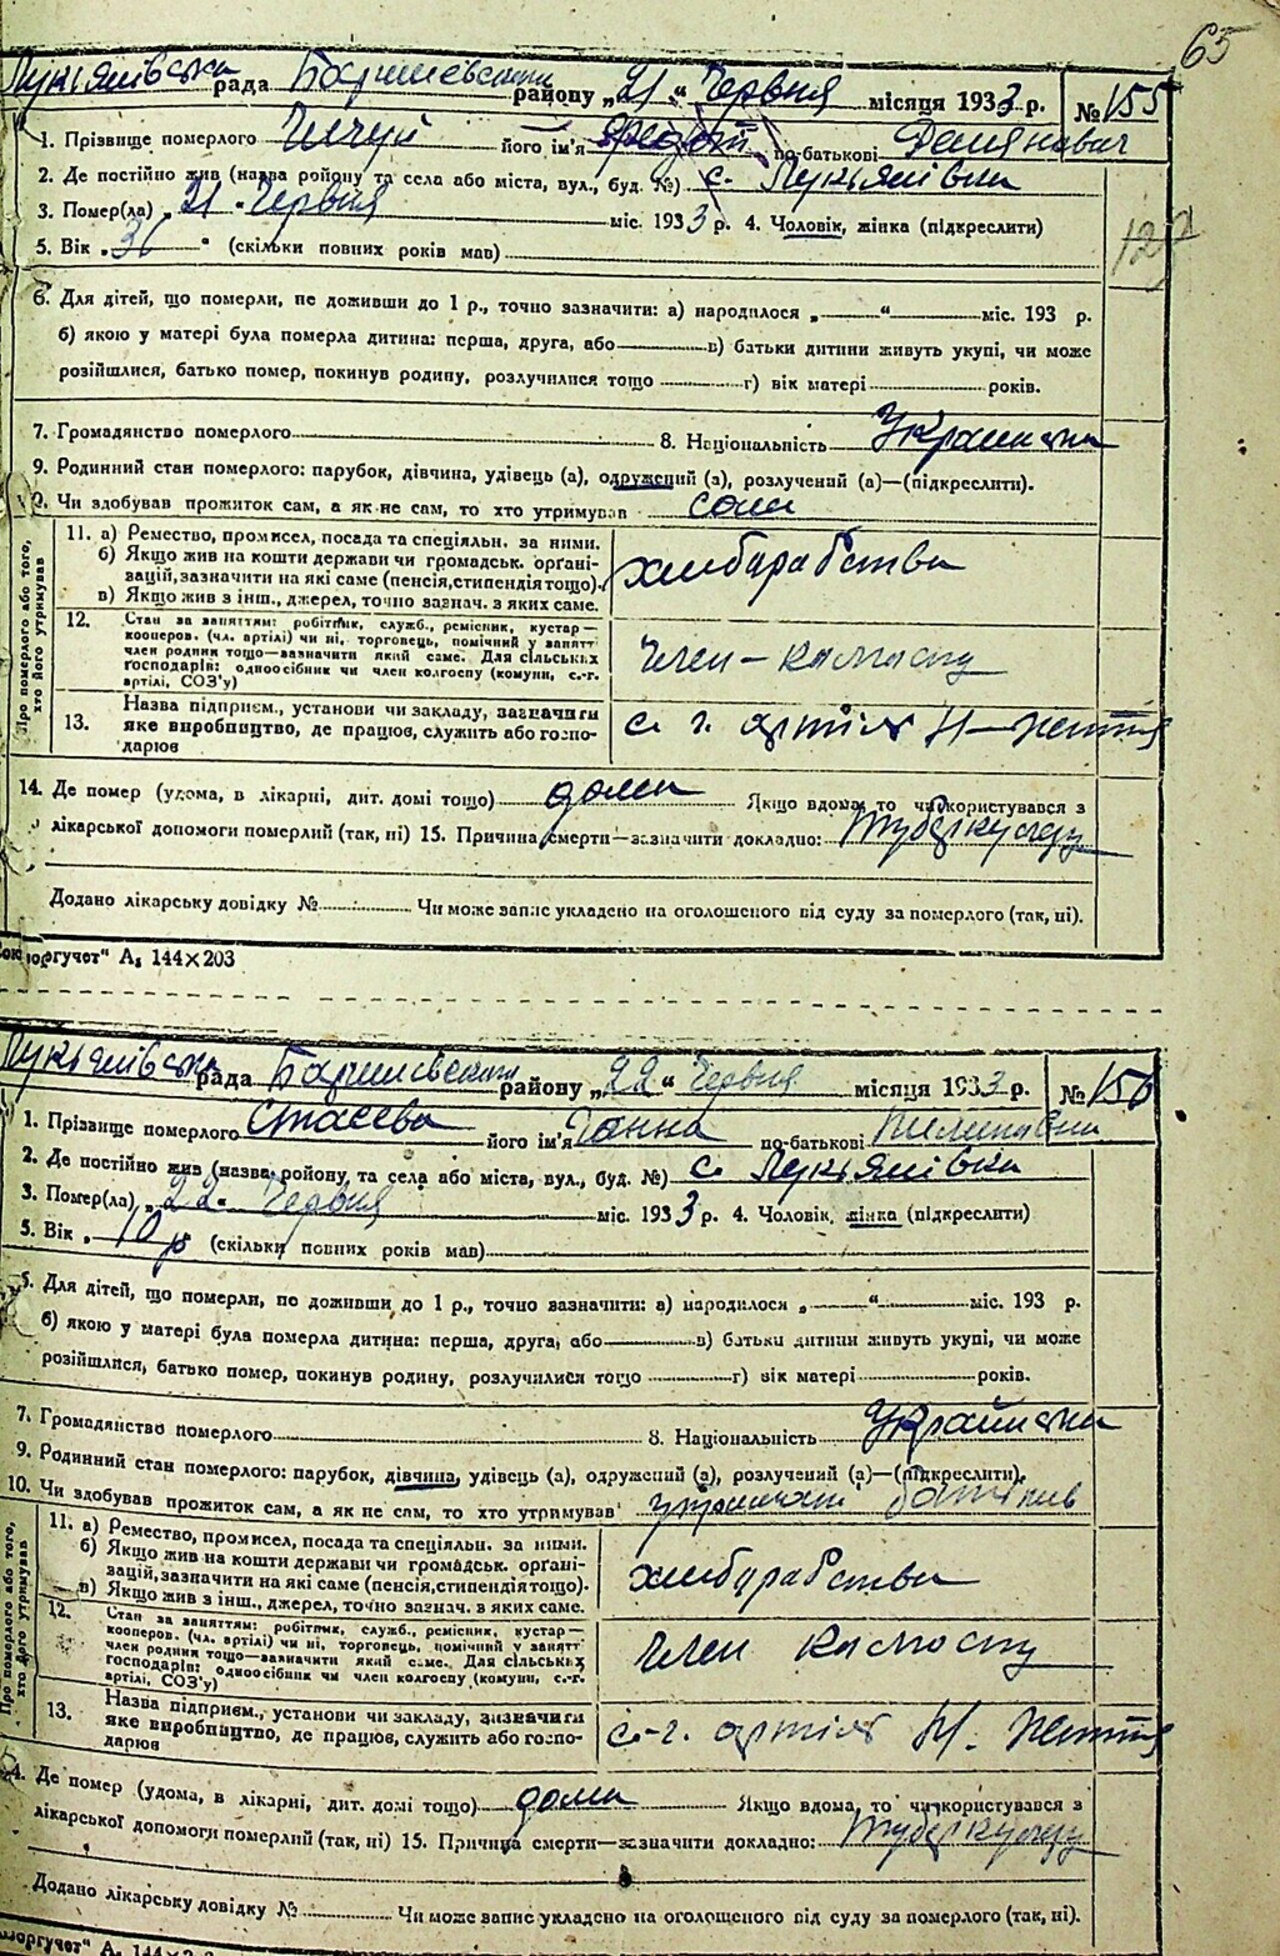 65
Лукьянівська рада Баришевського району „21“ Червня місяця 1933 р. № 155
1. Прізвище померлого Чичуй його ім'я по-батькові Демянович
2. Де постійно жив (назва району та села або міста, вул., буд. №) с. Лукьянівка
3. Помер(ла) „21“ Червня міс. 1933 р. 4. Чоловік, жінка (підкреслити)
5. Вік „36“ (скільки повних років мав)
6. Для дітей, що померли, не доживши до 1 р., точно зазначити: а) народилося „ “ міс. 193 р.
б) якою у матері була померла дитина: перша, друга, або в) батьки дитини живуть укупі, чи може
розійшлися, батько помер, покинув родину, розлучилися тощо г) вік матері років.
7. Громадянство померлого 8. Національність Українська
9. Родинний стан померлого: парубок, дівчина, удівець (а), одружений (а), розлучений (а)—(підкреслити).
Чи здобував прожиток сам, а як не сам, то хто утримував сам
Про померлого або того, хто його утримував
11. а) Ремество, промисел, посада та спеціяльн. за ними.
б) Якщо жив на кошти держави чи громадськ. органі-
зацій, зазначити на які саме (пенсія, стипендія тощо).
в) Якщо жив з інш., джерел, точно зазнач. з яких саме.
хлібарабства
12. Стан за заняттям: робітник, служб., ремісник, кустар—
кооперов. (чл. артілі) чи ні, торговець, помічний у занятті
член родини тощо—зазначити який саме. Для сільських
господарів: одноосібник чи член колгоспу (комуни, с.-г.
артілі, СОЗ'у)
член-колгоспу
13. Назва підприєм., установи чи закладу, зазначити
яке виробництво, де працює, служить або госпо-
дарює
с. г. артіль Н-життя
14. Де помер (удома, в лікарні, дит. домі тощо) дома Якщо вдома, то чи користувався з
лікарської допомоги померлий (так, ні) 15. Причина смерти—зазначити докладно: туберкульоз
Додано лікарську довідку № Чи може запис укладено на оголошеного від суду за померлого (так, ні).
оргучет“ А₅ 144×203
Лукьянівська рада Баришевського району „22“ Червня місяця 1933 р. № 156
1. Прізвище померлого Стасева його ім'я Ганна по-батькові Пилипівна
2. Де постійно жив (назва району та села або міста, вул., буд. №) с. Лукьянівка
3. Помер(ла) „22“ Червня міс. 1933 р. 4. Чоловік, жінка (підкреслити)
5. Вік „10 р“ (скільки повних років мав)
6. Для дітей, що померли, не доживши до 1 р., точно зазначити: а) народилося „ “ міс. 193 р.
б) якою у матері була померла дитина: перша, друга, або в) батьки дитини живуть укупі, чи може
розійшлися, батько помер, покинув родину, розлучилися тощо г) вік матері років.
7. Громадянство померлого 8. Національність Українська
9. Родинний стан померлого: парубок, дівчина, удівець (а), одружений (а), розлучений (а)—(підкреслити).
10. Чи здобував прожиток сам, а як не сам, то хто утримував батьків
Про померлого або того, хто його утримував
11. а) Ремество, промисел, посада та спеціяльн. за ними.
б) Якщо жив на кошти держави чи громадськ. органі-
зацій, зазначити на які саме (пенсія, стипендія тощо).
в) Якщо жив з інш., джерел, точно зазнач. в яких саме.
хлібарабства
12. Стан за заняттям: робітник, служб., ремісник, кустар—
кооперов. (чл. артілі) чи ні, торговець, помічний у занятті
член родини тощо—зазначити який саме. Для сільських
господарів: одноосібник чи член колгоспу (комуни, с.-г.
артілі, СОЗ'у)
член колгоспу
13. Назва підприєм., установи чи закладу, зазначити
яке виробництво, де працює, служить або госпо-
дарює
с-г. артіль Н. життя
4. Де помер (удома, в лікарні, дит. домі тощо) дома Якщо вдома, то чи користувався з
лікарської допомоги померлий (так, ні) 15. Причина смерти—зазначити докладно: туберкульоз
Додано лікарську довідку № Чи може запис укладено на оголошеного від суду за померлого (так, ні).
оргучет“ А₅